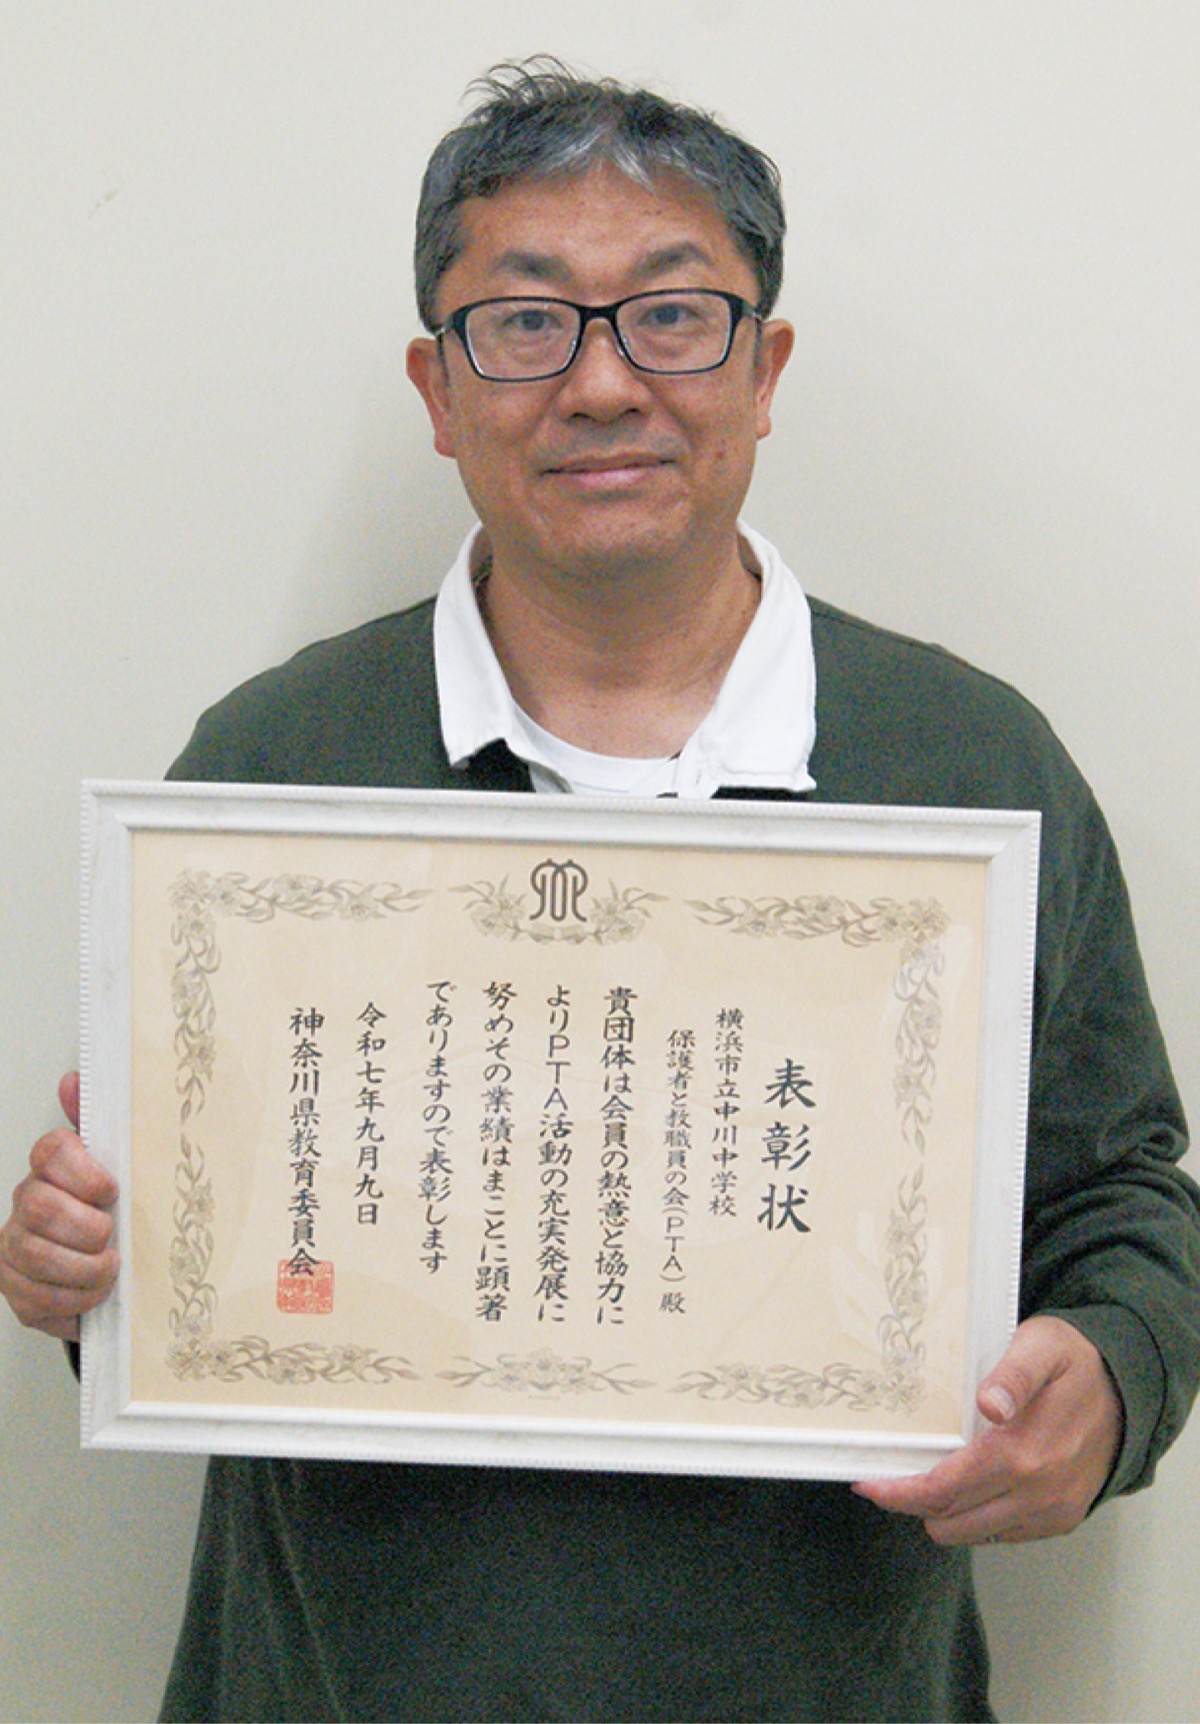 表彰状
横浜市立中川中学校
保護者と教職員の会(PTA)殿
貴団体は会員の熱意と協力に
よりPTA活動の充実発展に
努めその業績はまことに顕著
でありますので表彰します
令和七年九月九日
神奈川県教育委員会